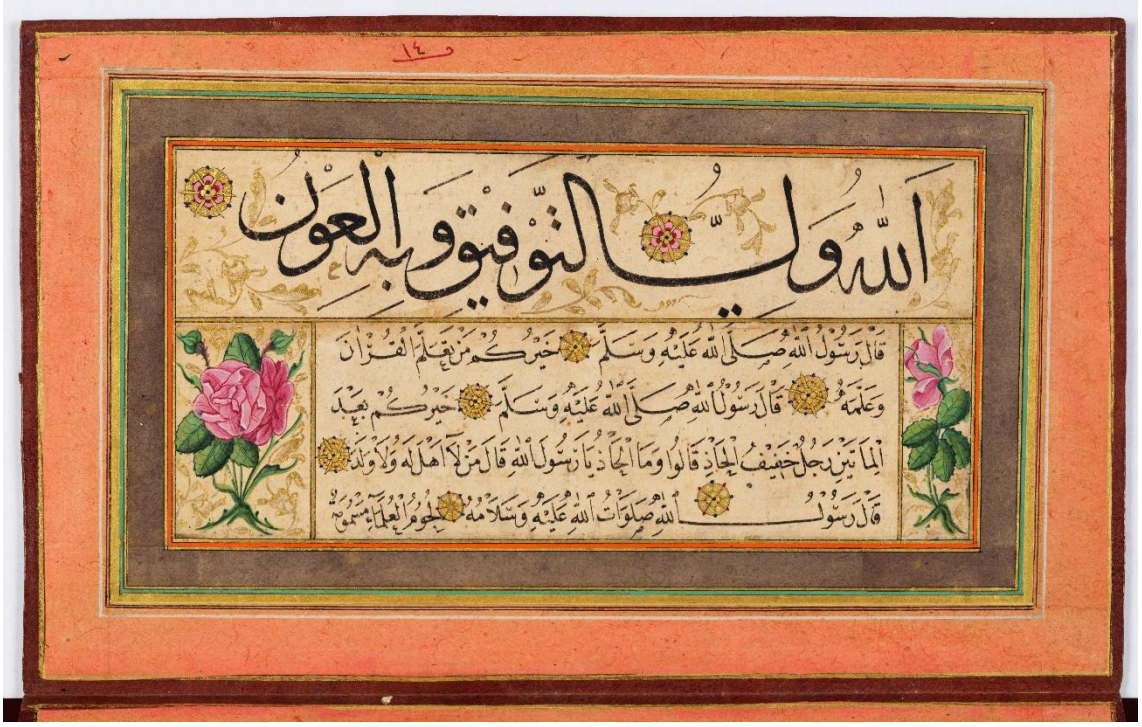 ١٤
اَللّٰهُ وَلِيُّ التَّوْفِيْقِ وَبِهِ الْعَوْنُ
قَالَ رَسُوْلُ اللّٰهِ صَلَّى اللّٰهُ عَلَيْهِ وَسَلَّمَ خَيْرُكُمْ مَنْ تَعَلَّمَ الْقُرْاٰنَ
وَعَلَّمَهُ قَالَ رَسُوْلُ اللّٰهِ صَلَّى اللّٰهُ عَلَيْهِ وَسَلَّمَ خَيْرُكُمْ بَعْدَ
الْمِائَتَيْنِ رَجُلٌ خَفِيْفُ الْحَاذِ قَالُوا وَمَا الْحَاذُ يَا رَسُوْلَ اللّٰهِ قَالَ مَنْ لَا اَهْلَ لَهُ وَلَا وَلَدَ
قَالَ رَسُوْلُ اللّٰهِ صَلَوَاتُ اللّٰهِ عَلَيْهِ وَسَلَامُهُ لُحُوْمُ الْعُلَمَاءِ مَسْمُوْمَةٌ